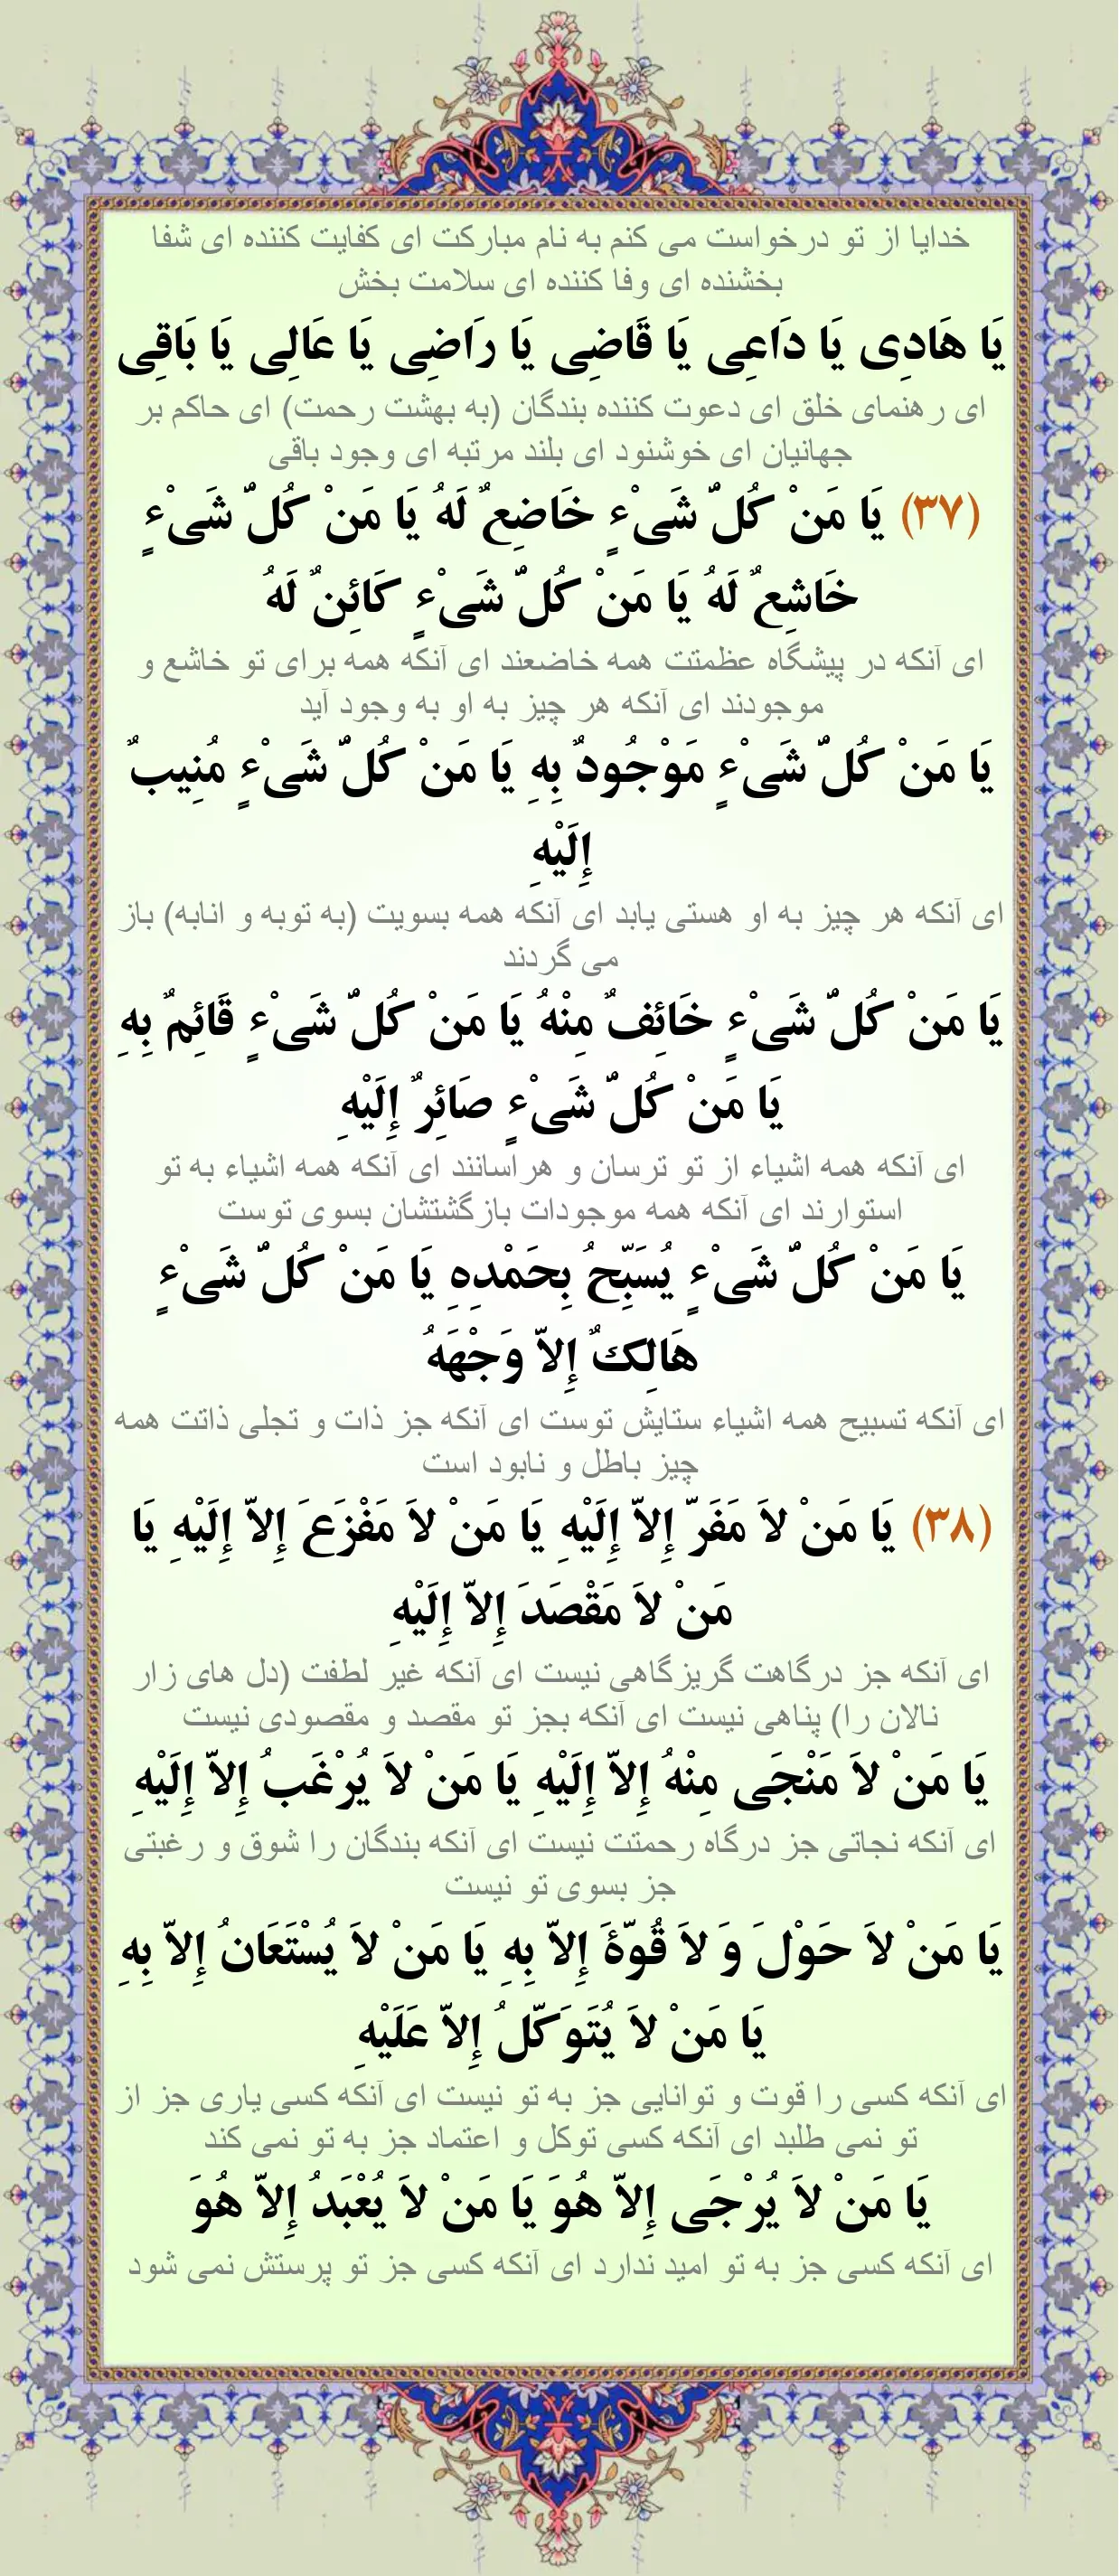 خدایا از تو درخواست می کنم به نام مبارکت ای کفایت کننده ای شفا
بخشنده ای وفا کننده ای سلامت بخش
يَا هَادِی يَا دَاعِی يَا قَاضِی يَا رَاضِی يَا عَالِی يَا بَاقِی
ای رهنمای خلق ای دعوت کننده بندگان (به بهشت رحمت) ای حاکم بر
جهانیان ای خوشنود ای بلند مرتبه ای وجود باقی
(۳۷) يَا مَنْ كُلّ شَیْءٍ خَاضِعٌ لَهُ يَا مَنْ كُلّ شَیْءٍ
خَاشِعٌ لَهُ يَا مَنْ كُلّ شَیْءٍ كَائِنٌ لَهُ
ای آنکه در پیشگاه عظمتت همه خاضعند ای آنکه همه برای تو خاشع و
موجودند ای آنکه هر چیز به او به وجود آید
يَا مَنْ كُلّ شَیْءٍ مَوْجُودٌ بِهِ يَا مَنْ كُلّ شَیْءٍ مُنِيبٌ
إِلَيْهِ
ای آنکه هر چیز به او هستی یابد ای آنکه همه بسویت (به توبه و انابه) باز
می گردند
يَا مَنْ كُلّ شَیْءٍ خَائِفٌ مِنْهُ يَا مَنْ كُلّ شَیْءٍ قَائِمٌ بِهِ
يَا مَنْ كُلّ شَیْءٍ صَائِرٌ إِلَيْهِ
ای آنکه همه اشیاء از تو ترسان و هراسانند ای آنکه همه اشیاء به تو
استوارند ای آنکه همه موجودات بازگشتشان بسوی توست
يَا مَنْ كُلّ شَیْءٍ يُسَبِّحُ بِحَمْدِهِ يَا مَنْ كُلّ شَیْءٍ
هَالِكٌ إِلاّ وَجْهَهُ
ای آنکه تسبیح همه اشیاء ستایش توست ای آنکه جز ذات و تجلی ذاتت همه
چیز باطل و نابود است
(۳۸) يَا مَنْ لاَ مَفَرّ إِلاّ إِلَيْهِ يَا مَنْ لاَ مَفْزَعَ إِلاّ إِلَيْهِ يَا
مَنْ لاَ مَقْصَدَ إِلاّ إِلَيْهِ
ای آنکه جز درگاهت گریزگاهی نیست ای آنکه غیر لطفت (دل های زار
نالان را) پناهی نیست ای آنکه بجز تو مقصد و مقصودی نیست
يَا مَنْ لاَ مَنْجَی مِنْهُ إِلاّ إِلَيْهِ يَا مَنْ لاَ يُرْغَبُ إِلاّ إِلَيْهِ
ای آنکه نجاتی جز درگاه رحمتت نیست ای آنکه بندگان را شوق و رغبتی
جز بسوی تو نیست
يَا مَنْ لاَ حَوْلَ وَ لاَ قُوّةَ إِلاّ بِهِ يَا مَنْ لاَ يُسْتَعَانُ إِلاّ بِهِ
يَا مَنْ لاَ يُتَوَكّلُ إِلاّ عَلَيْهِ
ای آنکه کسی را قوت و توانایی جز به تو نیست ای آنکه کسی یاری جز از
تو نمی طلبد ای آنکه کسی توکل و اعتماد جز به تو نمی کند
يَا مَنْ لاَ يُرْجَی إِلاّ هُوَ يَا مَنْ لاَ يُعْبَدُ إِلاّ هُوَ
ای آنکه کسی جز به تو امید ندارد ای آنکه کسی جز تو پرستش نمی شود